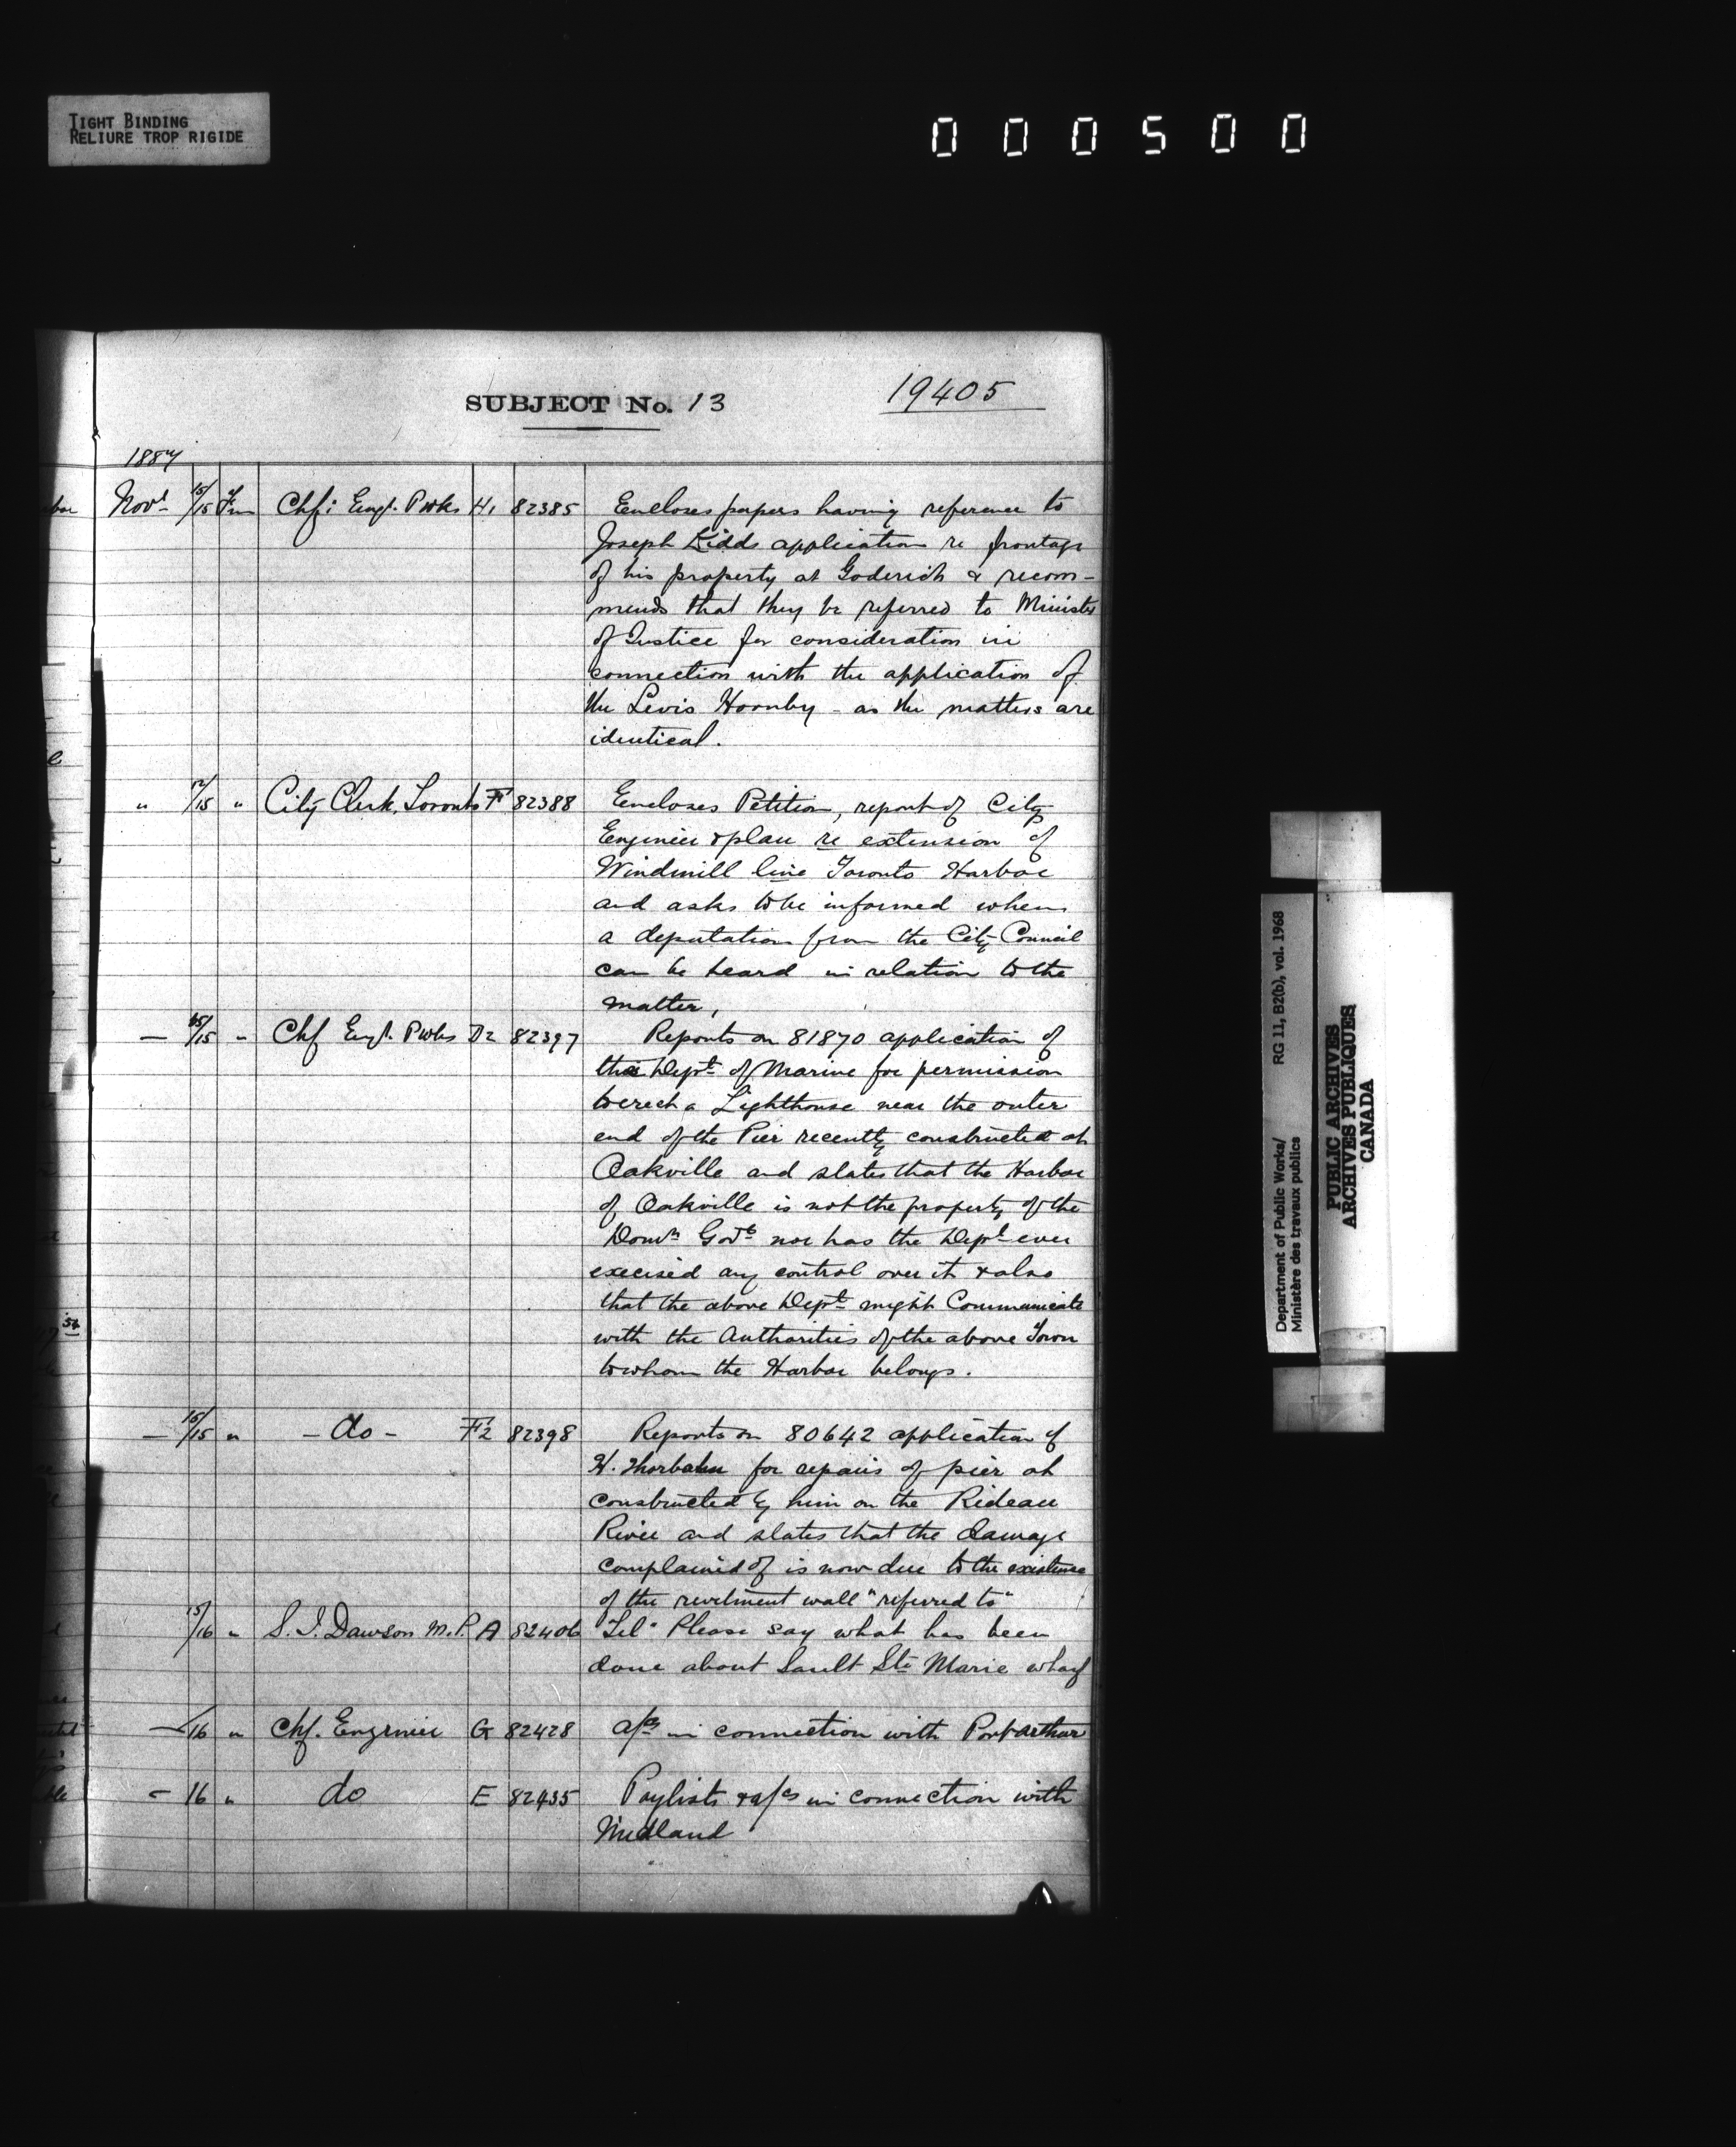 TIGHT BINDING
RELIURE TROP RIGIDE
000500
SUBJECT No. 13
19405
1887
Novr 15/15 Chf: Engr. Pwks H1 82385 Encloses papers having reference to
Joseph Kidds application re frontage
of his property at Goderich & recom-
mends that they be referred to Minister
of Justice for consideration in
connection with the application of
the Levis Hornby - as the matters are
identical.
" 12/15 " City Clerk, Toronto F 82388 Encloses Petition, report of City
Engineer & plan re extension of
Windmill line Toronto Harbor
and asks to be informed when
a deputation from the City Council
can be heard in relation to the
matter,
— 15/15 " Chf Engr. Pwks D2 82397 Reports on 81870 application of
the Dept of Marine for permission
to erect a Lighthouse near the outer
end of the Pier recently constructed at
Oakville and states that the Harbor
of Oakville is not the property of the
Domn Govt nor has the Dept ever
execised any control over it & also
that the above Dept might Communicate
with the Authorities of the above Town
to whom the Harbor belongs.
— 15/15 " - do - F2 82398 Reports on 80642 application of
H. Thorbahn for repairs of pier at
constructed by him on the Rideau
River and states that the damage
complained of is now due to the existence
of the revetment wall "referred to"
15/16 " S. J. Dawson M.P. A 82406 "Tel" Please say what has been
done about Sault Ste Marie wharf
— 16 " Chf. Engineer G 82428 a/cs in connection with Port Arthur
- 16 " do E 82435 Paylists & a/cs in connection with
Midland
Department of Public Works/ RG 11, B2(b), vol. 1968
Ministère des travaux publics
PUBLIC ARCHIVES
ARCHIVES PUBLIQUES
CANADA